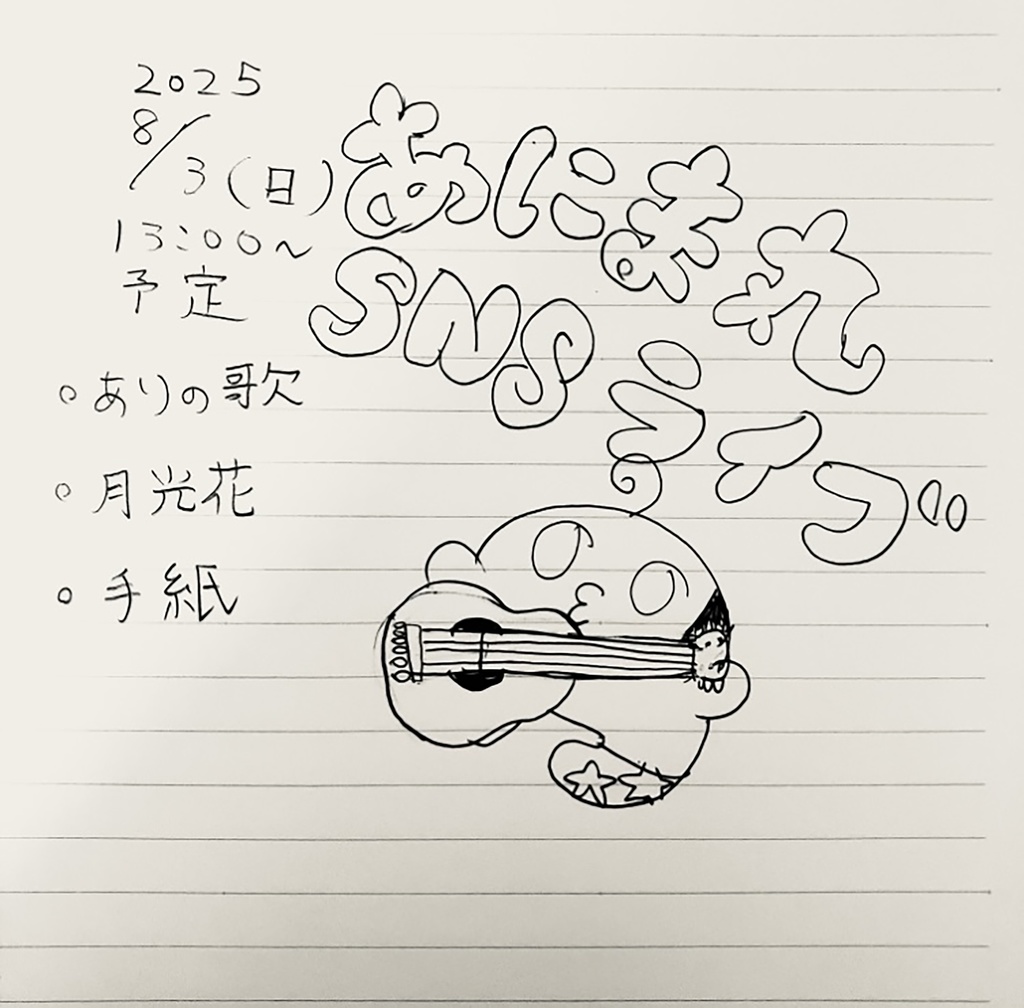 2025
8/3(日)
13:00~
予定
あにまれ
SNS
ライブ
○ありの歌
○月光花
○手紙